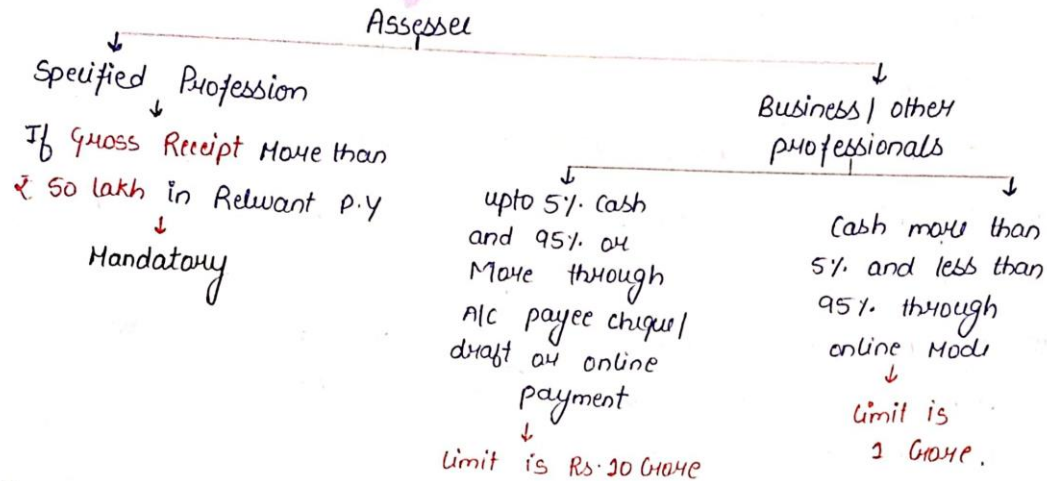 Assessee
Specified Profession
If Gross Receipt More than
₹ 50 lakh in Relevant P.Y
Mandatory
Business/ other
professionals
upto 5%. cash
and 95%. or
More through
A/c payee cheque/
draft or online
payment
Limit is Rs. 10 Crore
Cash more than
5%. and less than
95%. through
online Mode
Limit is
1 Crore.